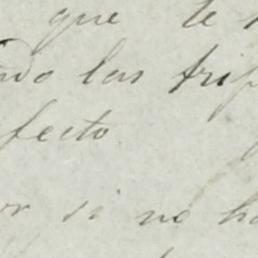 que te
ndo las trip
fecto
r si no ha